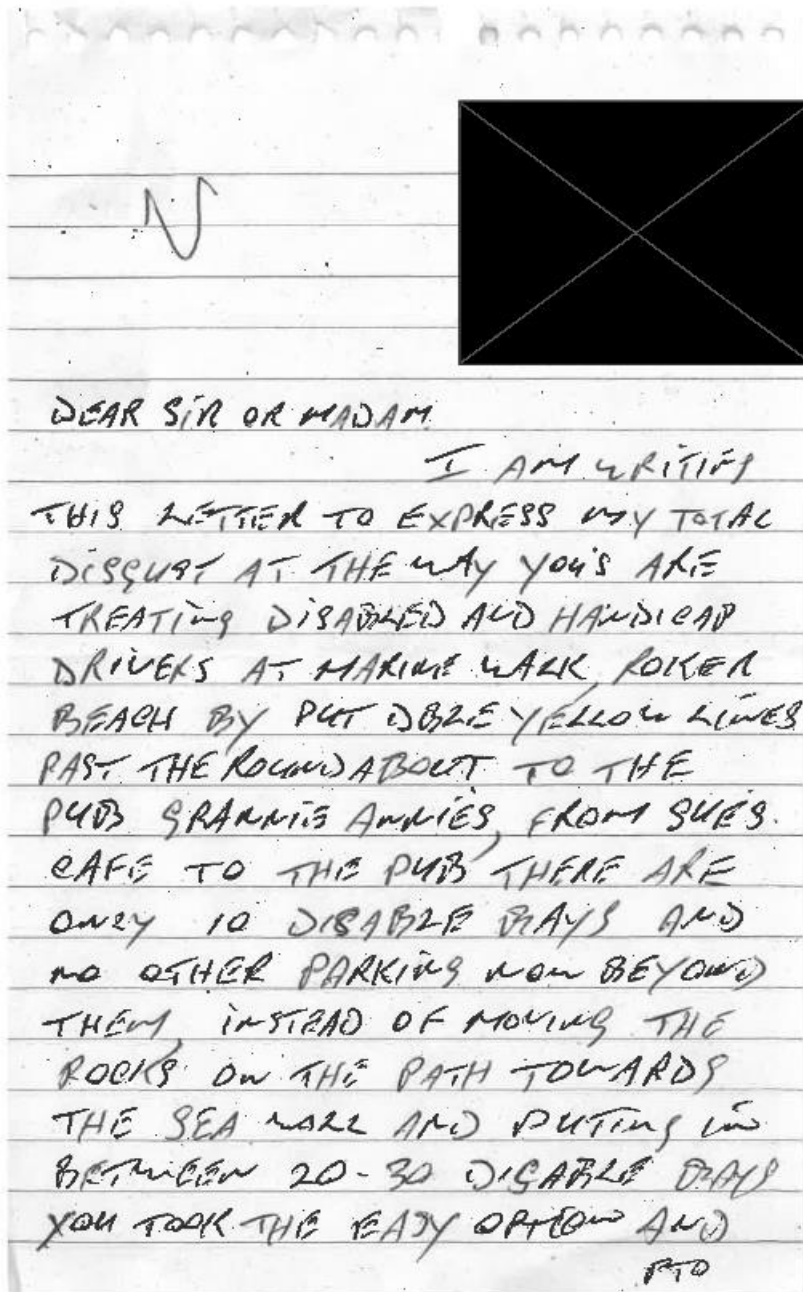 N
DEAR SIR OR MADAM
I AM WRITING
THIS LETTER TO EXPRESS MY TOTAL
DISGUST AT THE WAY YOU'S ARE
TREATING DISABLED AND HANDICAP
DRIVERS AT MARINE WALK, ROKER
BEACH BY PUT DBLE YELLOW LINES
PAST THE ROUNDABOUT TO THE
PUB GRANNIE ANNIES, FROM SUES
CAFE TO THE PUB THERE ARE
ONLY 10 DISABLE BAYS AND
NO OTHER PARKING NOW BEYOND
THEM, INSTEAD OF MOVING THE
ROCKS ON THE PATH TOWARDS
THE SEA WALL AND PUTING IN
BETWEEN 20-30 DISABLE BAYS
YOU TOOK THE EASY OPTION AND
PTO